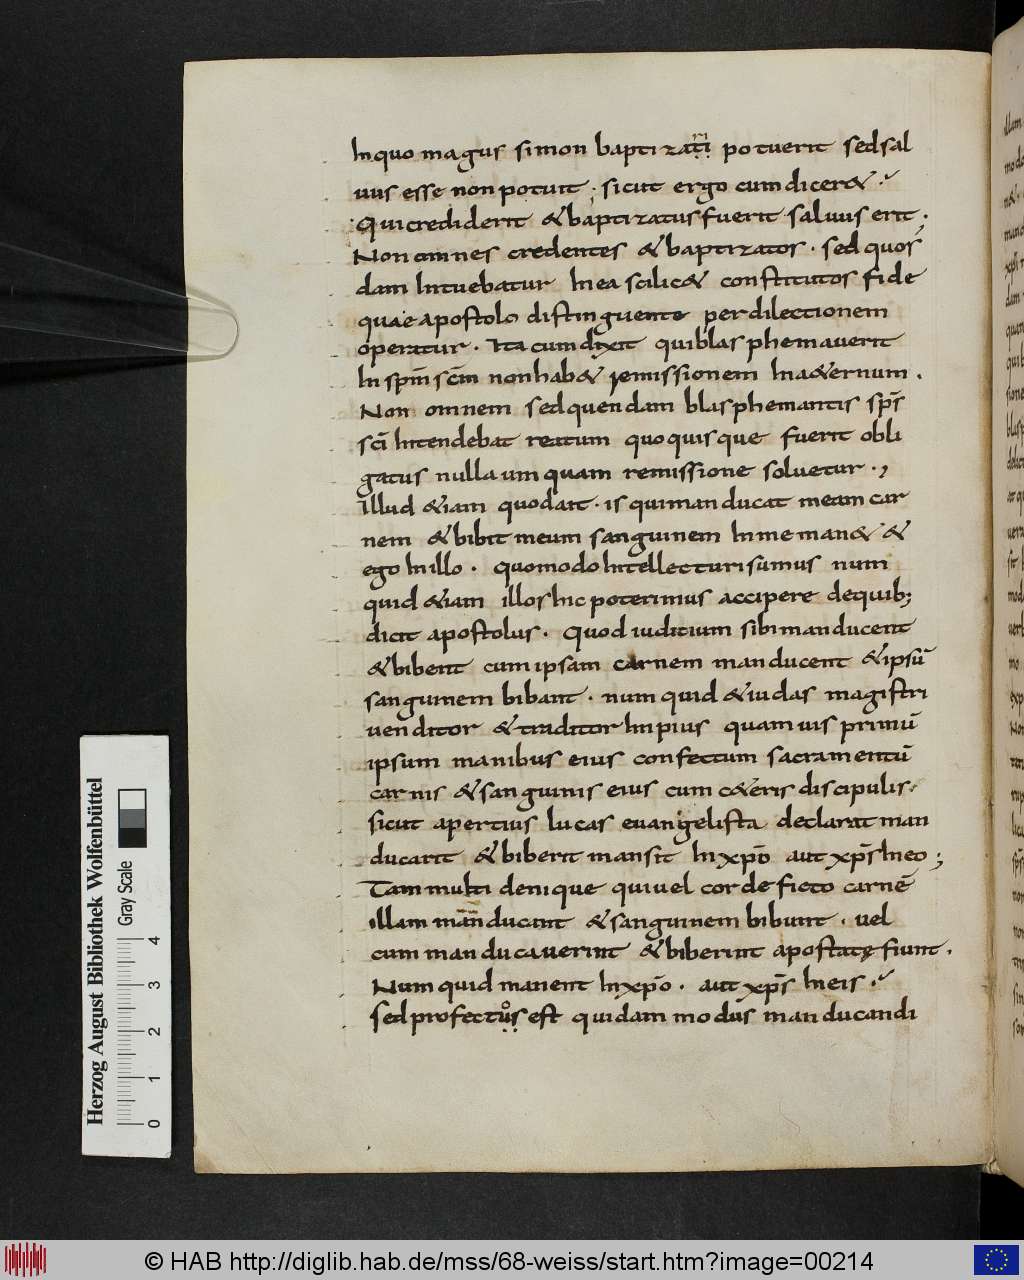 In quo magus simon baptizari potuerit sed sal
uus esse non potuit · sicut ergo cum dicer&
Qui crediderit & baptizatus fuerit saluus erit .
Non omnes credentes & baptizatos · sed quos
dam Intuebatur In ea scilic& constitutos fide
quae apostolo distinguente per dilectionem
operatur . Ita cum dixit qui blasphemauerit
In sp̄m sc̄m non hab& remissionem In a&ernum .
Non omnem sed quendam blasphemantis sp̄s
sc̄i Intendebat reatum quo quisque fuerit obli
gatus nulla um quam remissione soluetur .,
Illud &iam quod ait · is qui manducat meam car
nem & bibit meum sanguinem In me man& &
ego In illo . quomodo Intellecturi sumus num
quid &iam illos hic poterimus accipere de quib;
dicit apostolus . Quod iuditium sibi manducent
& bibent cum ipsam carnem manducent & ipsū
sanguinem bibant . num quid & iudas magistri
uenditor & traditor Impius quamuis primū
ipsum manibus eius confectum sacramentū
carnis & sanguinis eius cum c&eris discipulis
sicut apertius lucas euangelista declarat man
ducarit & biberit mansit In xp̄o aut xp̄s In eo ;
Tam multi denique qui uel corde ficto carnē
illam manducant & sanguinem bibunt . uel
cum manducauerint & biberint apostatę fiunt .
Num quid manent In xp̄o . aut xp̄s In eis .
sed profecto est quidam modus manducandi
Herzog August Bibliothek Wolfenbüttel
Gray Scale
0 1 2 3 4
© HAB http://diglib.hab.de/mss/68-weiss/start.htm?image=00214